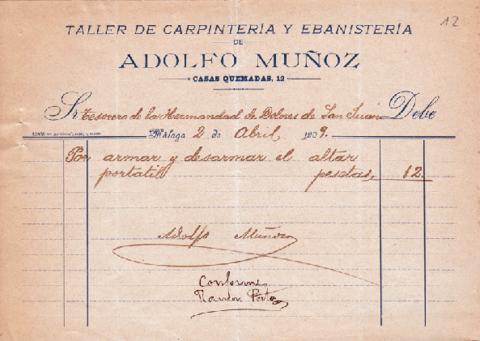 12
TALLER DE CARPINTERÍA Y EBANISTERÍA
DE
ADOLFO MUÑOZ
CASAS QUEMADAS, 12
Sr. Tesorero de la Hermandad de Dolores de San Juan Debe
Málaga 2 de Abril 1909.
Por armar y desarmar el altar
portatil pesetas, 12
Adolfo Muñoz
Conforme
Ramón